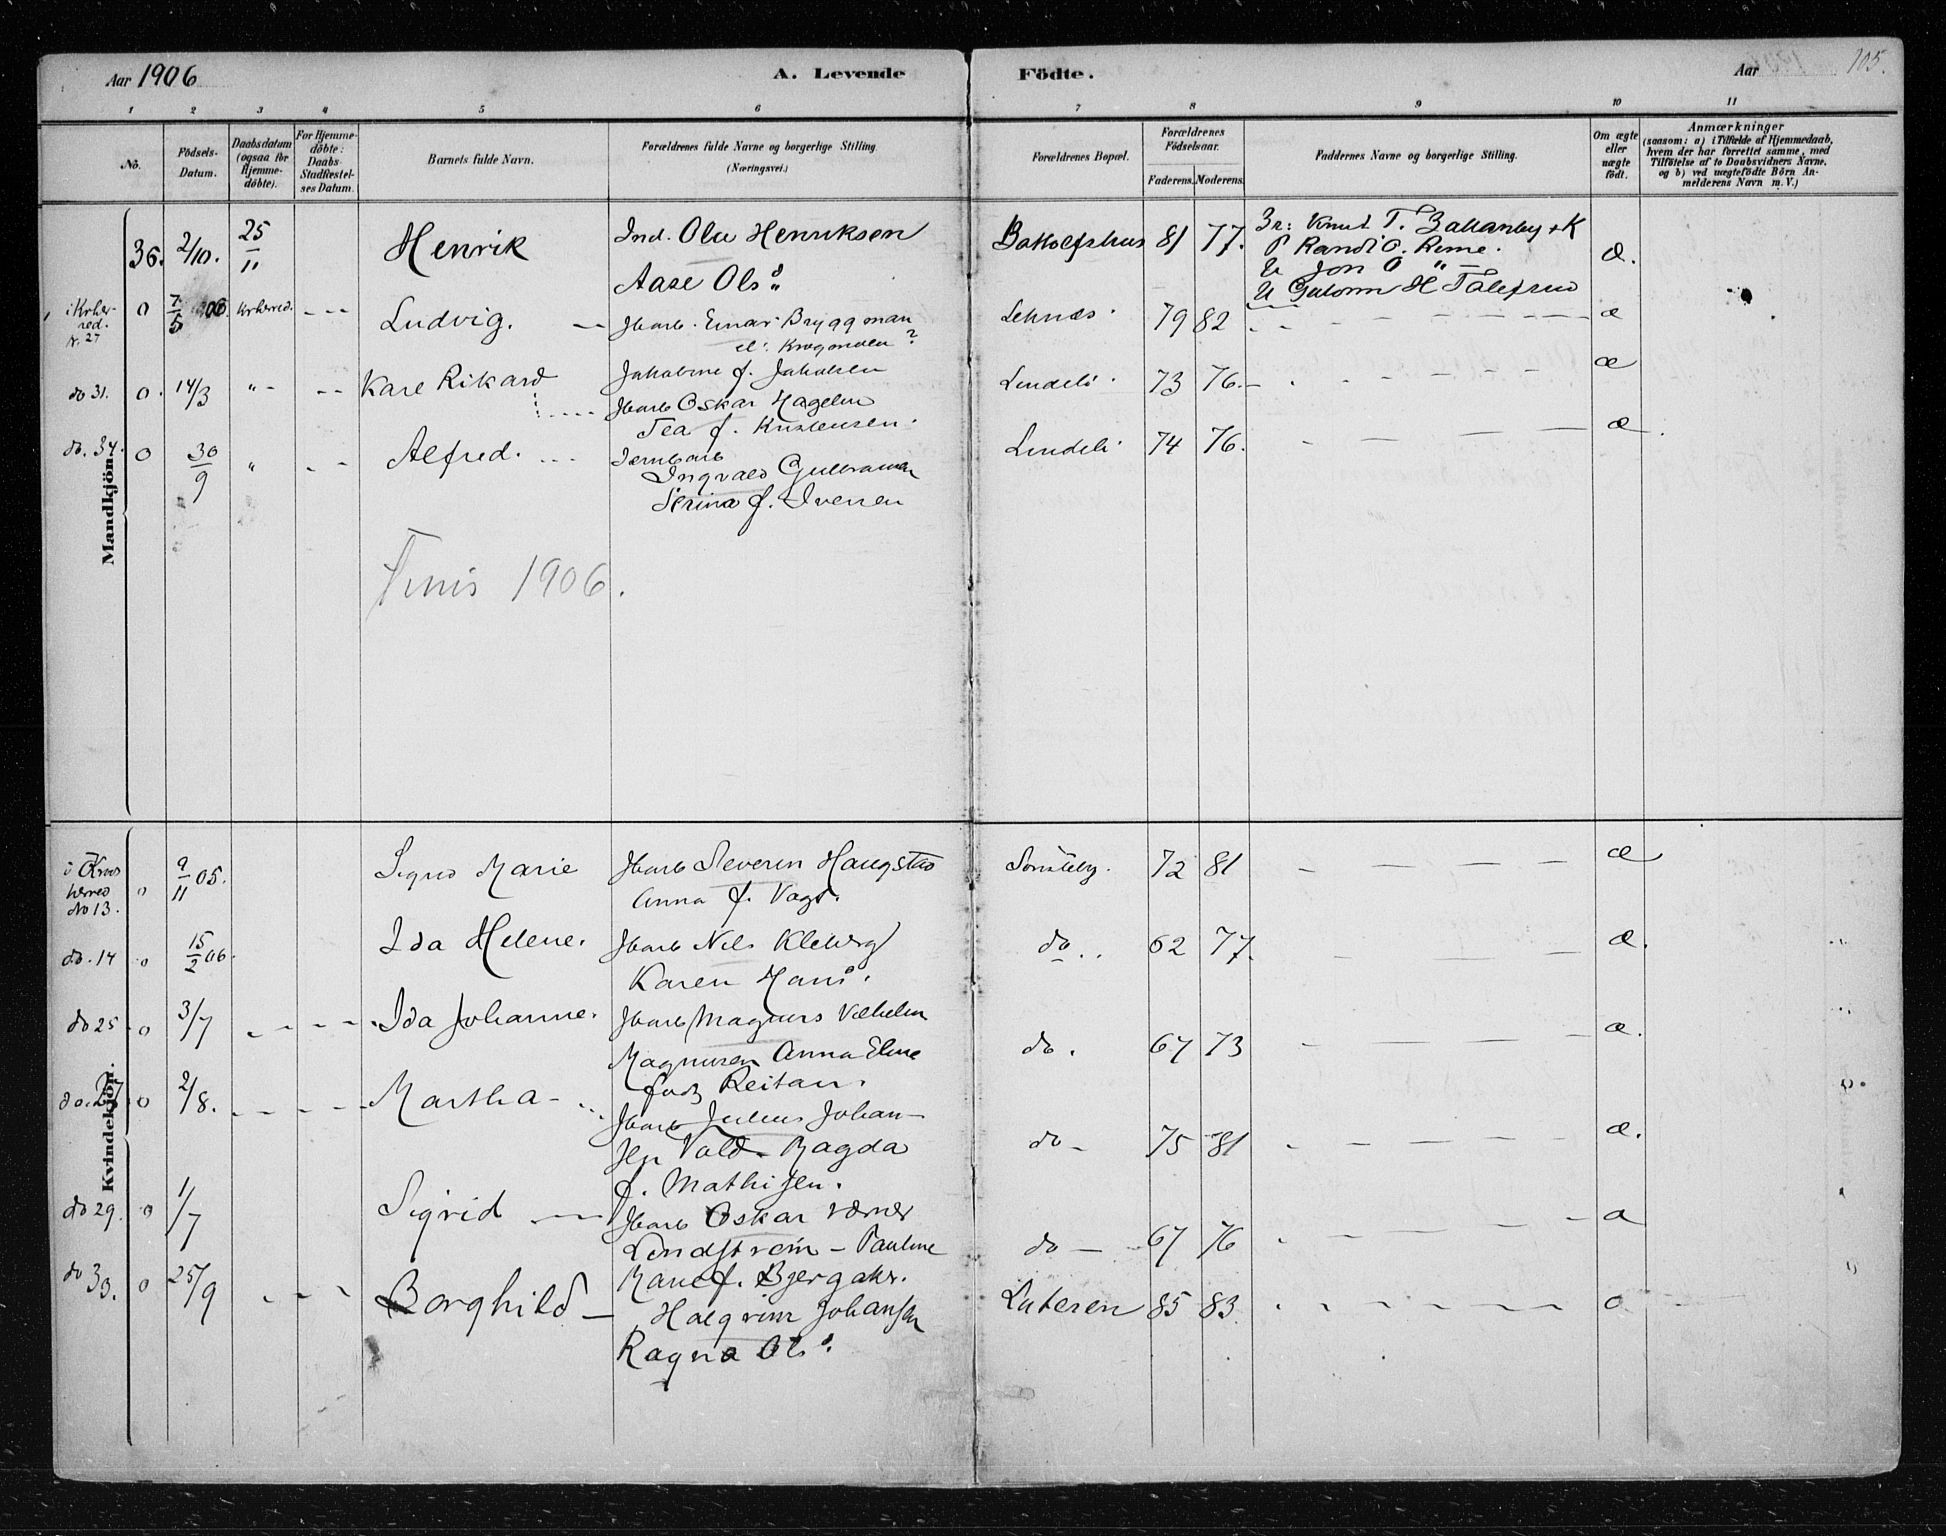 Aar 1906
A. Levende Födte.
Aar
105.
1 2 3 4 5 6 7 8 9 10 11
No.
Födsels-Datum.
Daabsdatum (ogsaa for Hjemme-döbte).
For Hjemme-döbte: Daabs-Stadfæstel-ses Datum.
Barnets fulde Navn.
Forældrenes fulde Navne og borgerlige Stilling (Næringsvei.)
Forældrenes Bopæl.
Forældrenes Födselsaar.
Faderens. Moderens.
Faddernes Navne og borgerlige Stilling.
Om ægte eller uægte födt.
Anmærkninger
(saasom: a) i Tilfælde af Hjemmedaab, hvem der har forrettet samme, med Tilföielse af to Daabsvidners Navne, og b) ved uægtefödte Börn An-melderens Navn m. V.)
Mandkjön.
36. 2/10. 25/11 Henrik
Ind. Ole Henriksen
Aase Ols
81 77.
Knut T.
Randi O.
Jon O "
H
æ.
i Krhe-red. N. 27 0 7/5 06 Krherred. Ludvig.
Jbarb. Einar Bryggman
el. ?
Jakobine f. Jakobsen
Leknæs. 79 82 æ
do 31. 0. 14/3 " Kare Rikard
Jbarb Oskar Hagelin
Tea f. Kristensen.
Lindeli. 73 76. æ
do. 34. 0 30/9 " Alfred.
Jernbarb
Ingvald
Serina f. Iversen
Lindeli 74 76. æ
Finis 1906.
Kvindekjön.
i Kros herred No 13. 0 9/11 05. Sigrid Marie
Jbarb Severin Haugstad
Anna f. Vagt.
72 81 æ
do. 14 0 15/2 06. Ida Helene.
Jbarb Nils Kleberg
Karen Hans.
do 62 77. æ.
do 25 0 3/7 Ida Johanne.
Jbarb Magnus Vilhelm
Magnusen Anna Eline
født Reitan.
do. 67 73 æ.
do. 27. 0 2/8. Martha
Jbarb Julius Johan-
sen Vold - Magda
f. Mathisen.
do 75 81 æ.
do 29. 0 1/7 Sigrid
Jbarb Oskar Verner
Lindstrøm - Pauline
Marie f.
do 67 76 æ
do 33. 0 25/9 Borghild
Halgrim Johansen
Ragna Ols
85 83.